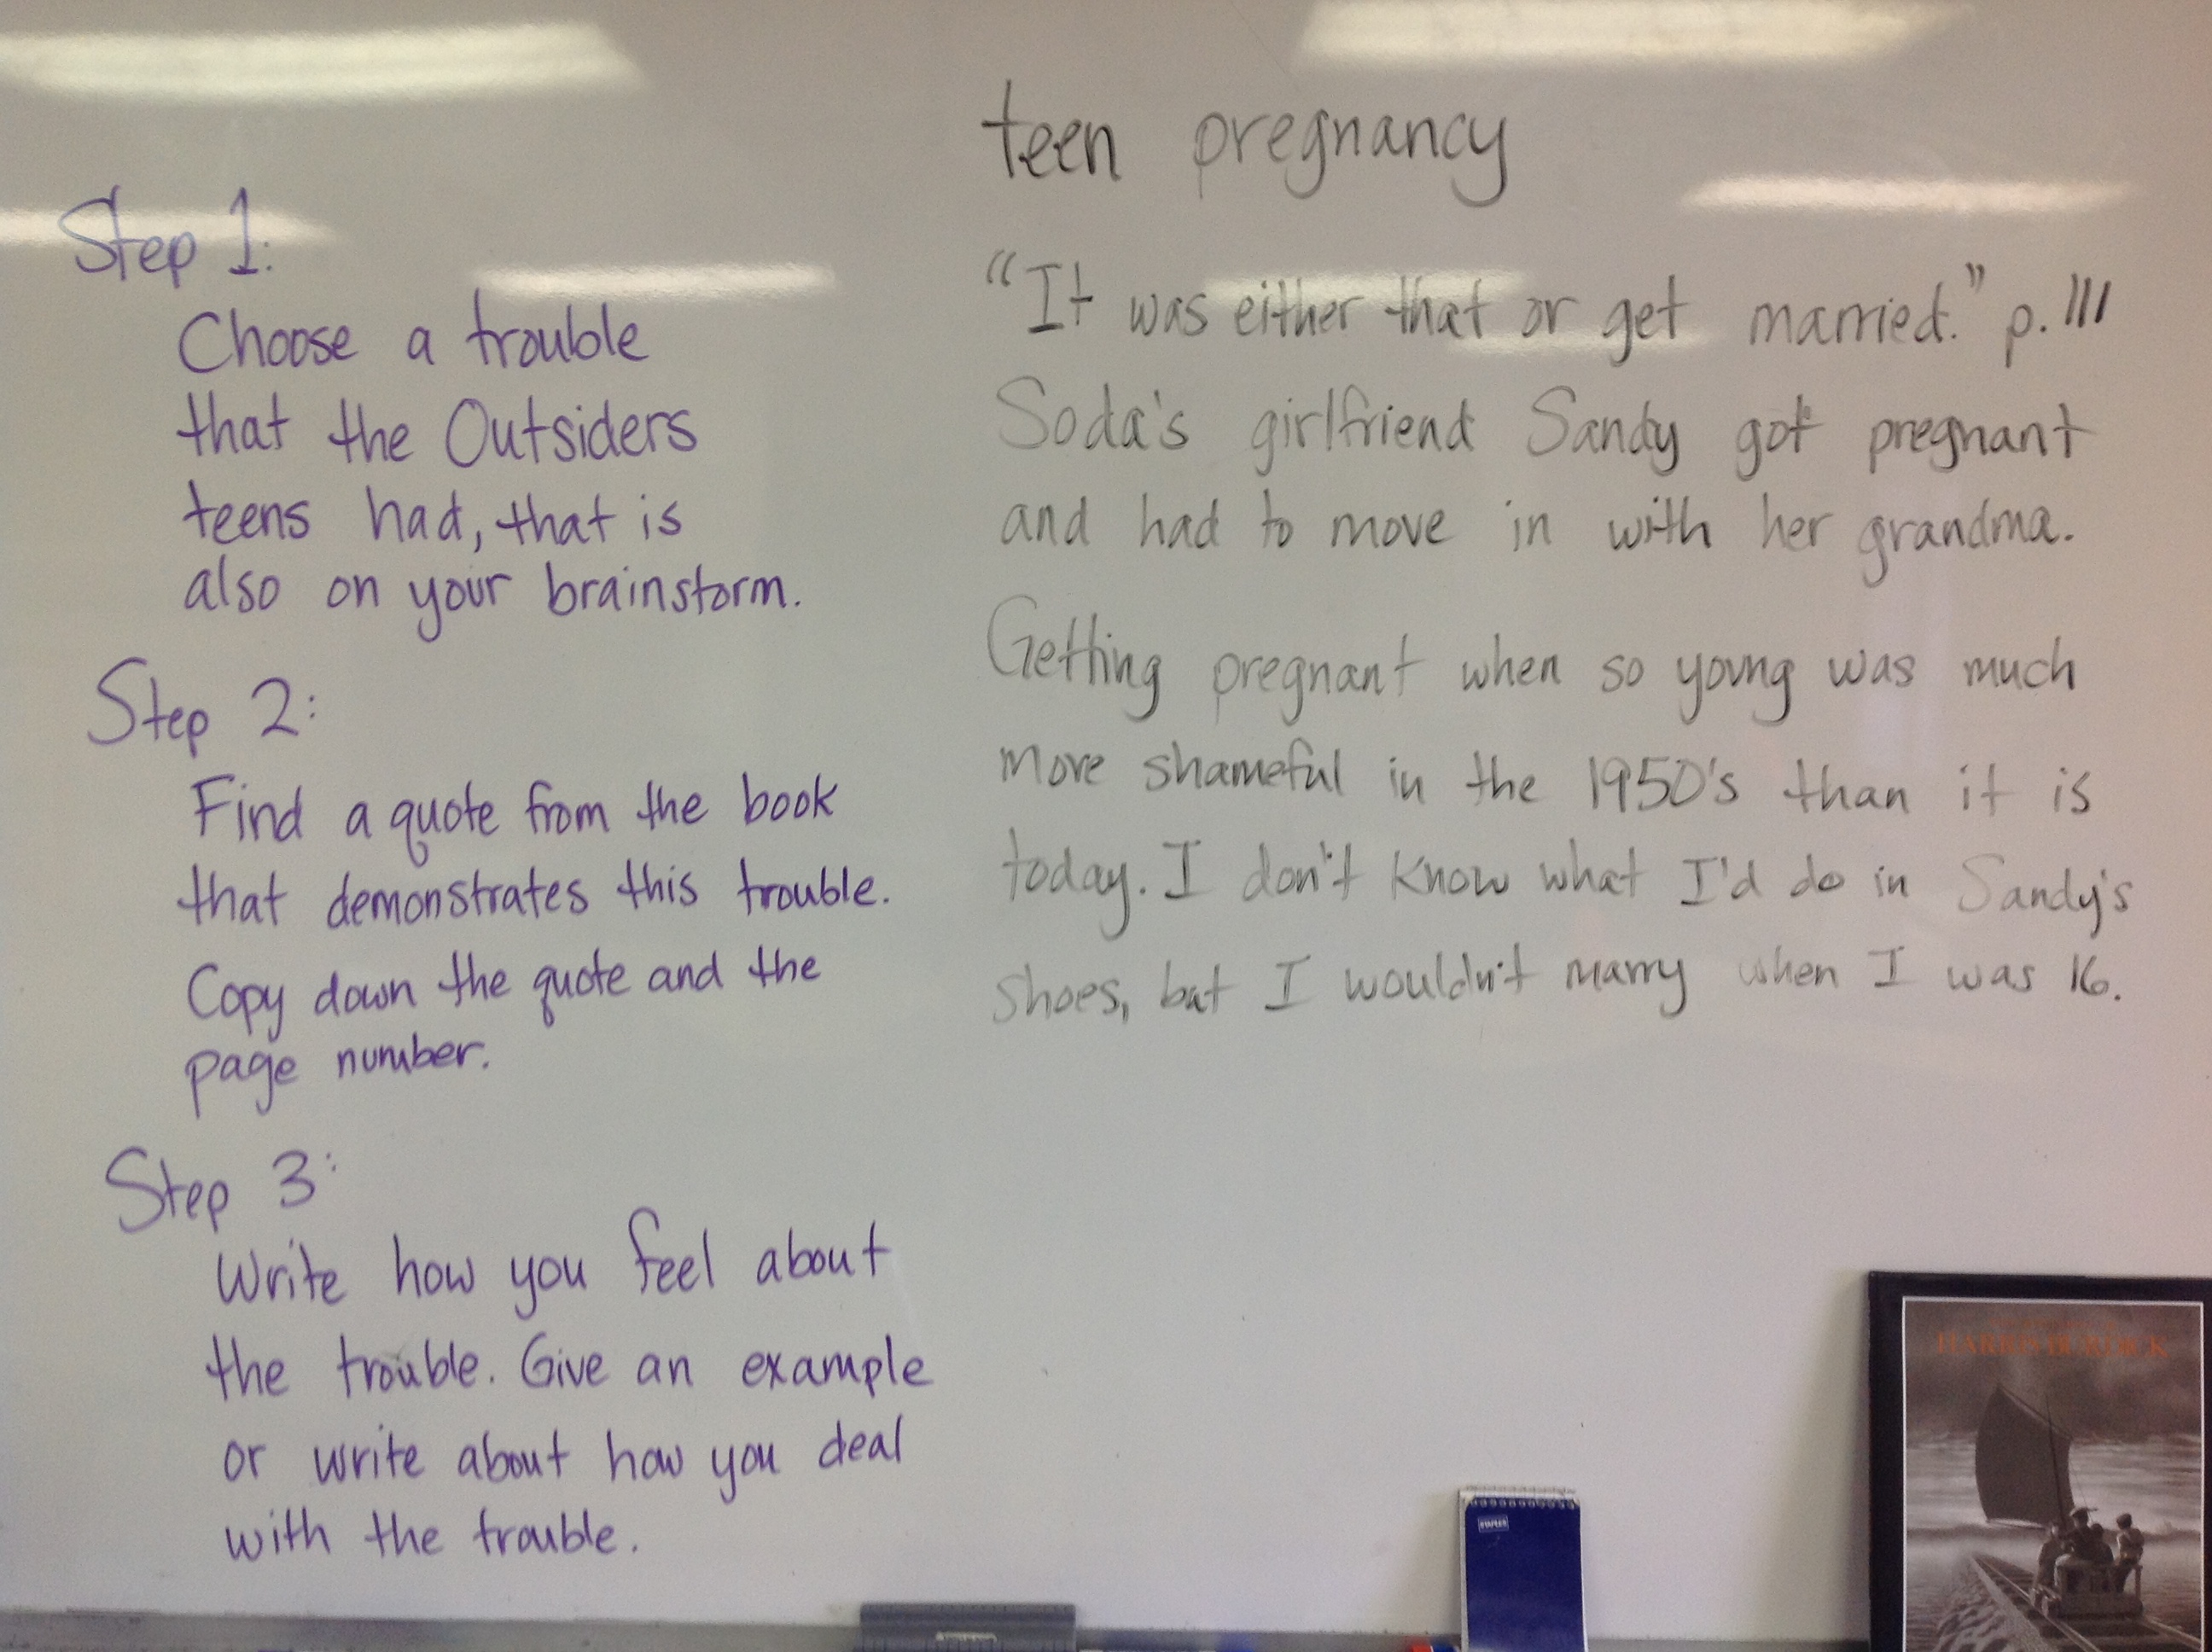 Step 1:
Choose a trouble
that the Outsiders
teens had, that is
also on your brainstorm.
Step 2:
Find a quote from the book
that demonstrates this trouble.
Copy down the quote and the
page number.
Step 3:
Write how you feel about
the trouble. Give an example
or write about how you deal
with the trouble.
teen pregnancy
"It was either that or get married." p. 111
Soda's girlfriend Sandy got pregnant
and had to move in with her grandma.
Getting pregnant when so young was much
more shameful in the 1950's than it is
today. I don't know what I'd do in Sandy's
shoes, but I wouldn't marry when I was 16.
STAPLES
HARRIS BURDICK